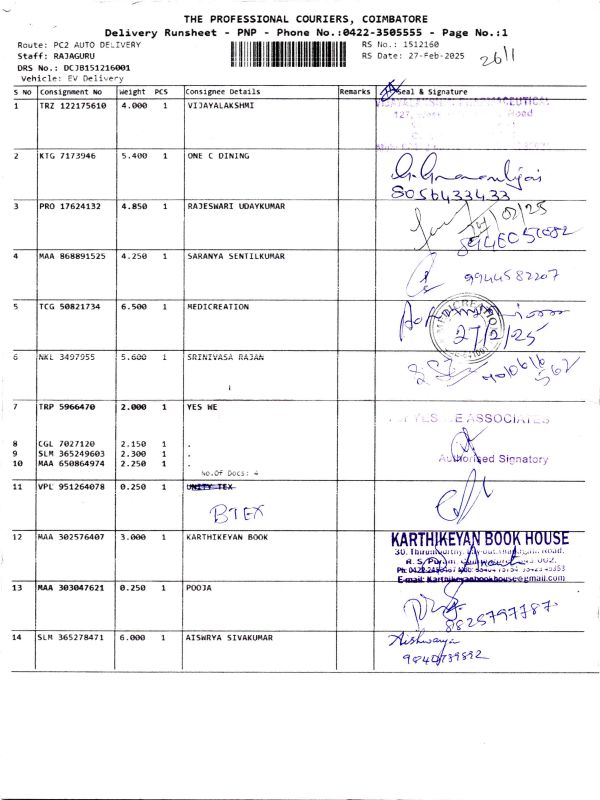 THE PROFESSIONAL COURIERS, COIMBATORE
Delivery Runsheet - PNP - Phone No.:0422-3505555 - Page No.:1
Route: PC2 AUTO DELIVERY
RS No.: 1512160
Staff: RAJAGURU
RS Date: 27-Feb-2025
DRS No.: DCJB151216001
Vehicle: EV Delivery
S No Consignment No Weight PCS Consignee Details Remarks Seal & Signature
1 TRZ 122175610 4.000 1 VIJAYALAKSHMI
2 KTG 7173946 5.400 1 ONE C DINING
8056433433
3 PRO 17624132 4.850 1 RAJESWARI UDAYKUMAR
4 MAA 868891525 4.250 1 SARANYA SENTILKUMAR
9944582207
5 TCG 50821734 6.500 1 MEDICREATION
27/2/25
6 NKL 3497955 5.600 1 SRINIVASA RAJAN
7 TRP 5966470 2.000 1 YES WE
YES WE ASSOCIATES
8 CGL 7027120 2.150 1 .
9 SLM 365249603 2.300 1 .
10 MAA 650864974 2.250 1 .
Authorised Signatory
No.Of Docs: 4
11 VPL 951264078 0.250 1 UNITY TEX
BTEX
12 MAA 302576407 3.000 1 KARTHIKEYAN BOOK
KARTHIKEYAN BOOK HOUSE
R.S. Puram,
E-mail: Karthikeyanbookhouse@gmail.com
13 MAA 303047621 0.250 1 POOJA
8825797787
14 SLM 365278471 6.000 1 AISWRYA SIVAKUMAR
Aishwarya
9840739892